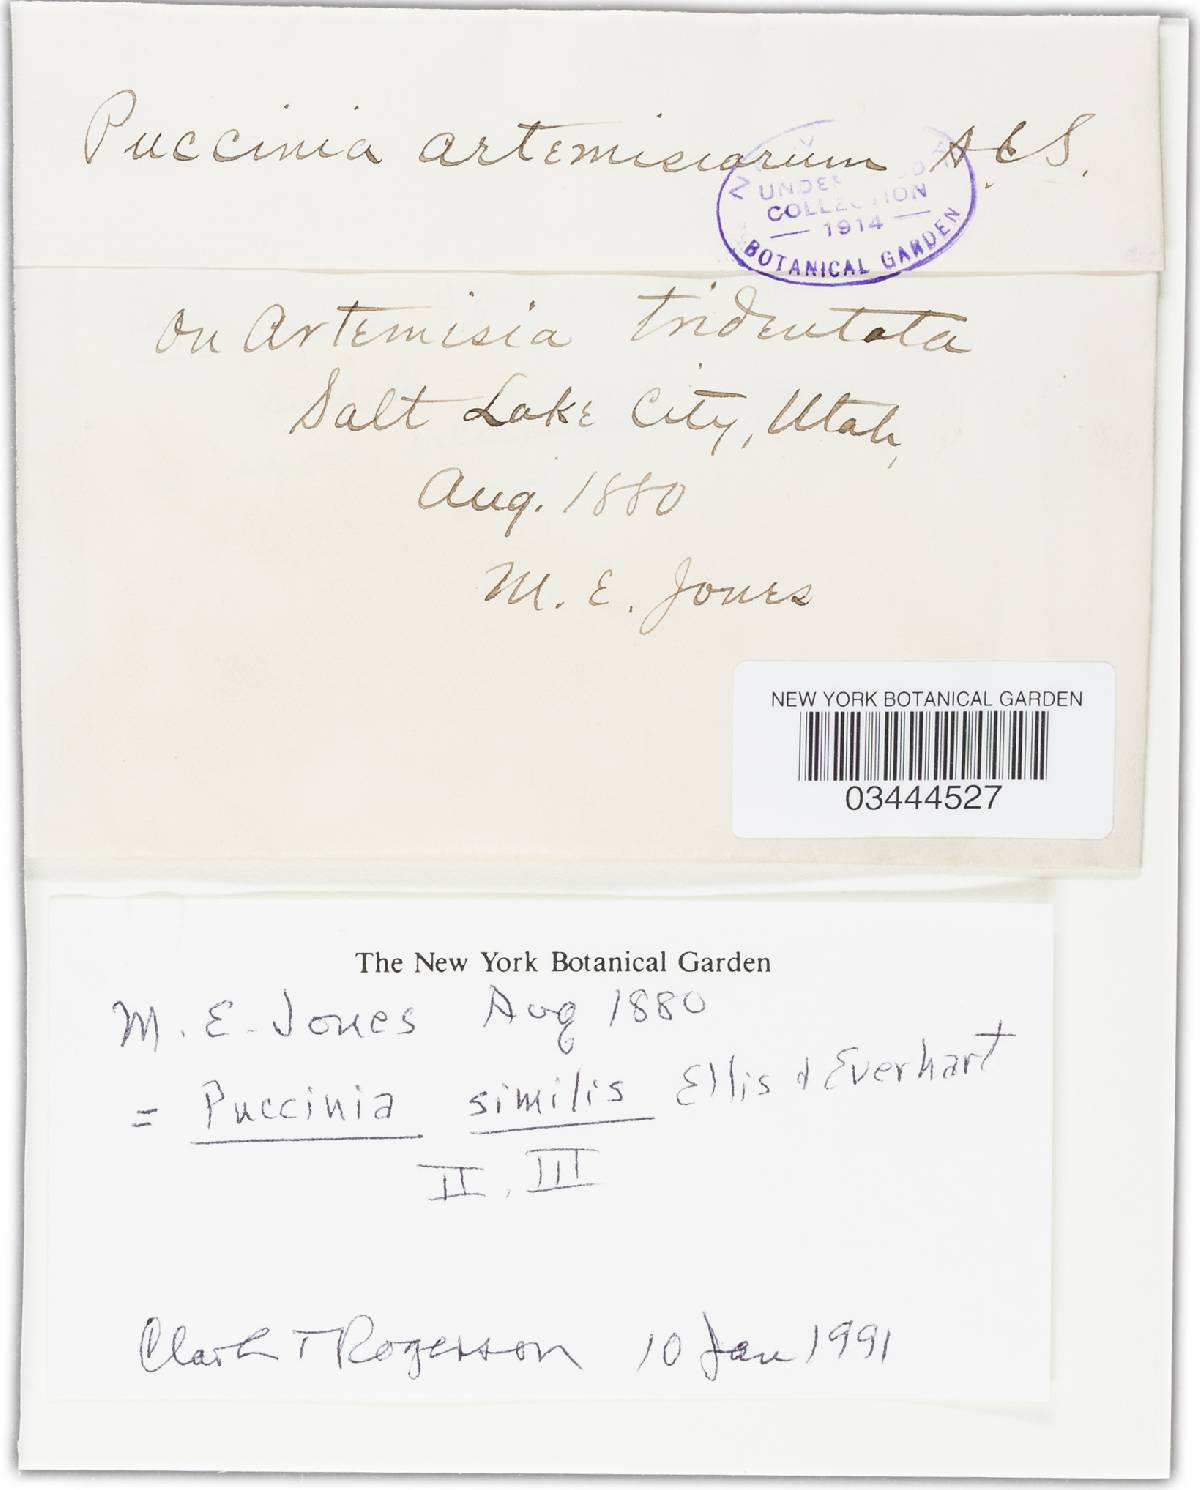 Puccinia artemisiarum
UNDER
COLLECTION
— 1914 —
BOTANICAL GARDEN
on Artemisia tridentata
Salt Lake City, Utah,
Aug. 1880
M. E. Jones
NEW YORK BOTANICAL GARDEN
03444527
The New York Botanical Garden
M. E. Jones Aug 1880
= Puccinia similis Ellis & Everhart
II, III
Clark T Rogerson 10 Jan 1991